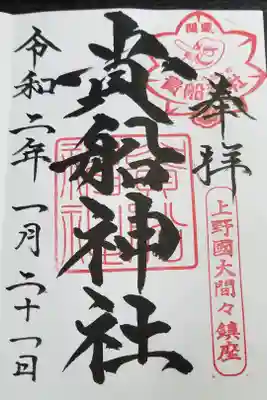 奉拝
上野國大間々鎮座
貴船神社
令和二年一月二十一日